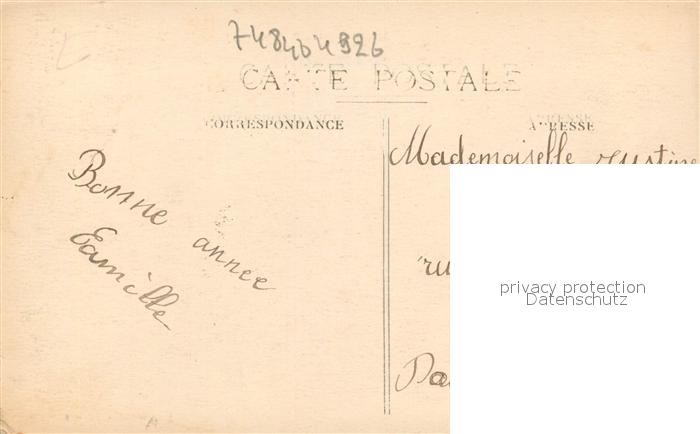 748464926
CARTE POSTALE
CORRESPONDANCE
ADRESSE
Bonne année
Camille
Mademoiselle Justine
ru
Pa
privacy protection
Datenschutz